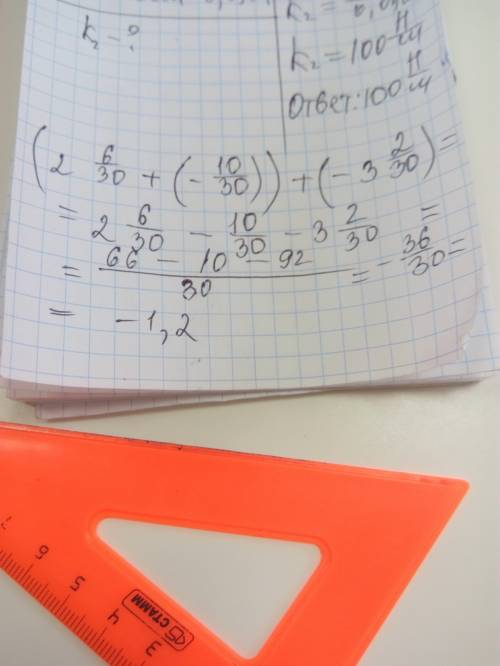 k₂ - ?
k₂ =
k₂ = 100 Н/м
Ответ: 100 Н/м
(2 6/30 + (- 10/30)) + (- 3 2/30) =
= 2 6/30 - 10/30 - 3 2/30 =
= (66 - 10 - 92)/30 = - 36/30 =
= -1,2
7 6 5 4 3
СТАММ